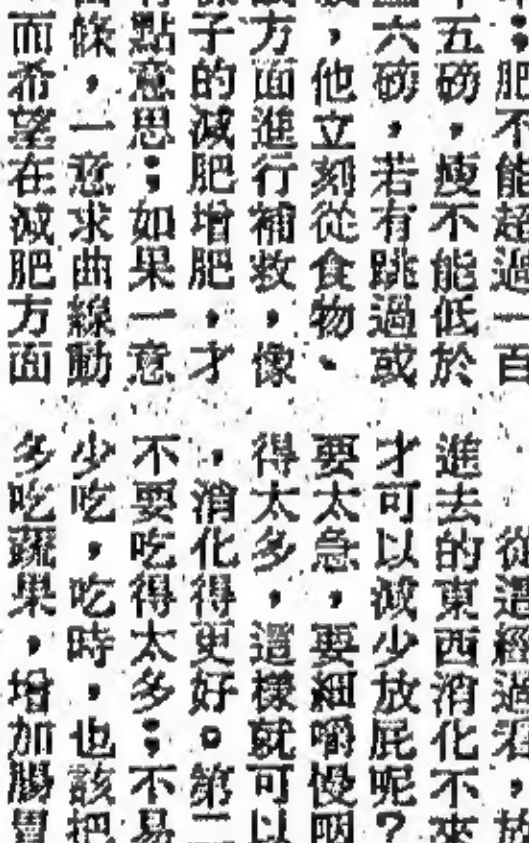 ：肥不能超過一百
五磅，瘦不能低於
六磅，若有跳過或
，他立刻從食物、
方面進行補救，像
子的減肥增肥，才
點意思；如果一意
條，一意求曲線動
而希望在減肥方面
從這經過看，放
進去的東西消化不來
才可以減少放屁呢？
要太急，要細嚼慢咽
得太多，這樣就可以
，消化得更好。第二
不要吃得太多；不易
少吃，吃時，也該把
多吃蔬果，增加腸胃